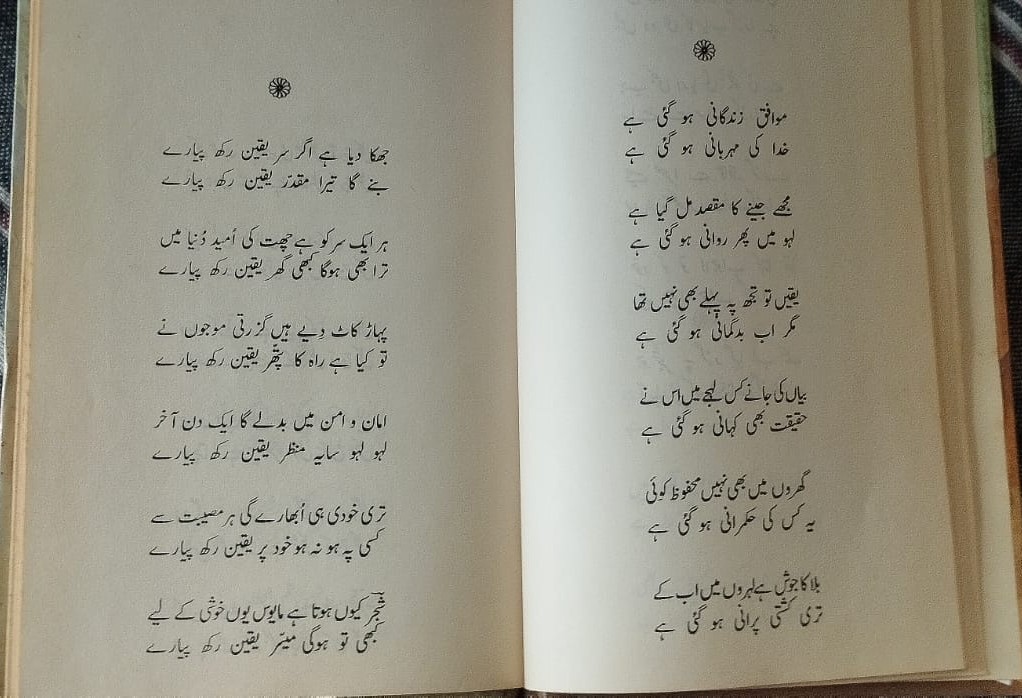 موافق زندگانی ہو گئی ہے
خدا کی مہربانی ہو گئی ہے
مجھے جینے کا مقصد مل گیا ہے
لہو میں پھر روانی ہو گئی ہے
یقیں تو تجھ پہ پہلے بھی نہیں تھا
مگر اب بدگمانی ہو گئی ہے
بیاں کی جانے کس لہجے میں اس نے
حقیقت بھی کہانی ہو گئی ہے
گھروں میں بھی نہیں محفوظ کوئی
یہ کس کی حکمرانی ہو گئی ہے
بلا کا جوش ہے لہروں میں اب کے
تری کشتی پرانی ہو گئی ہے
جھکا دیا ہے اگر سر یقین رکھ پیارے
بنے گا تیرا مقدّر یقین رکھ پیارے
ہر ایک سر کو ہے چھت کی اُمید دُنیا میں
ترا بھی ہوگا کبھی گھر یقین رکھ پیارے
پہاڑ کاٹ دِیے ہیں گزرتی موجوں نے
تو کیا ہے راہ کا پتھّر یقین رکھ پیارے
امان و امن میں بدلے گا ایک دن آخر
لہو لہو سایہ منظر یقین رکھ پیارے
تری خودی ہی اُبھارے گی ہر مصیبت سے
کسی پہ ہو نہ ہو خود پر یقین رکھ پیارے
شجر کیوں ہوتا ہے مایوس یوں خوشی کے لیے
کبھی تو ہوگی میسّر یقین رکھ پیارے